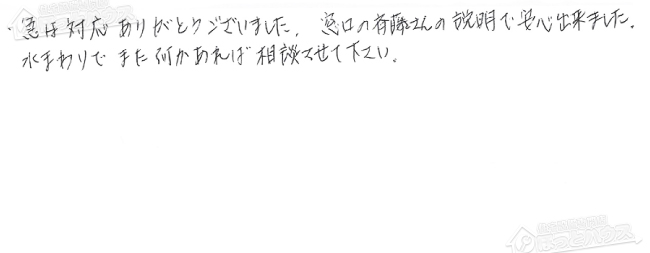 ・急な対応ありがとうございました。窓口の斉藤さんの説明で安心出来ました。
水まわりでまた何かあれば相談させて下さい。